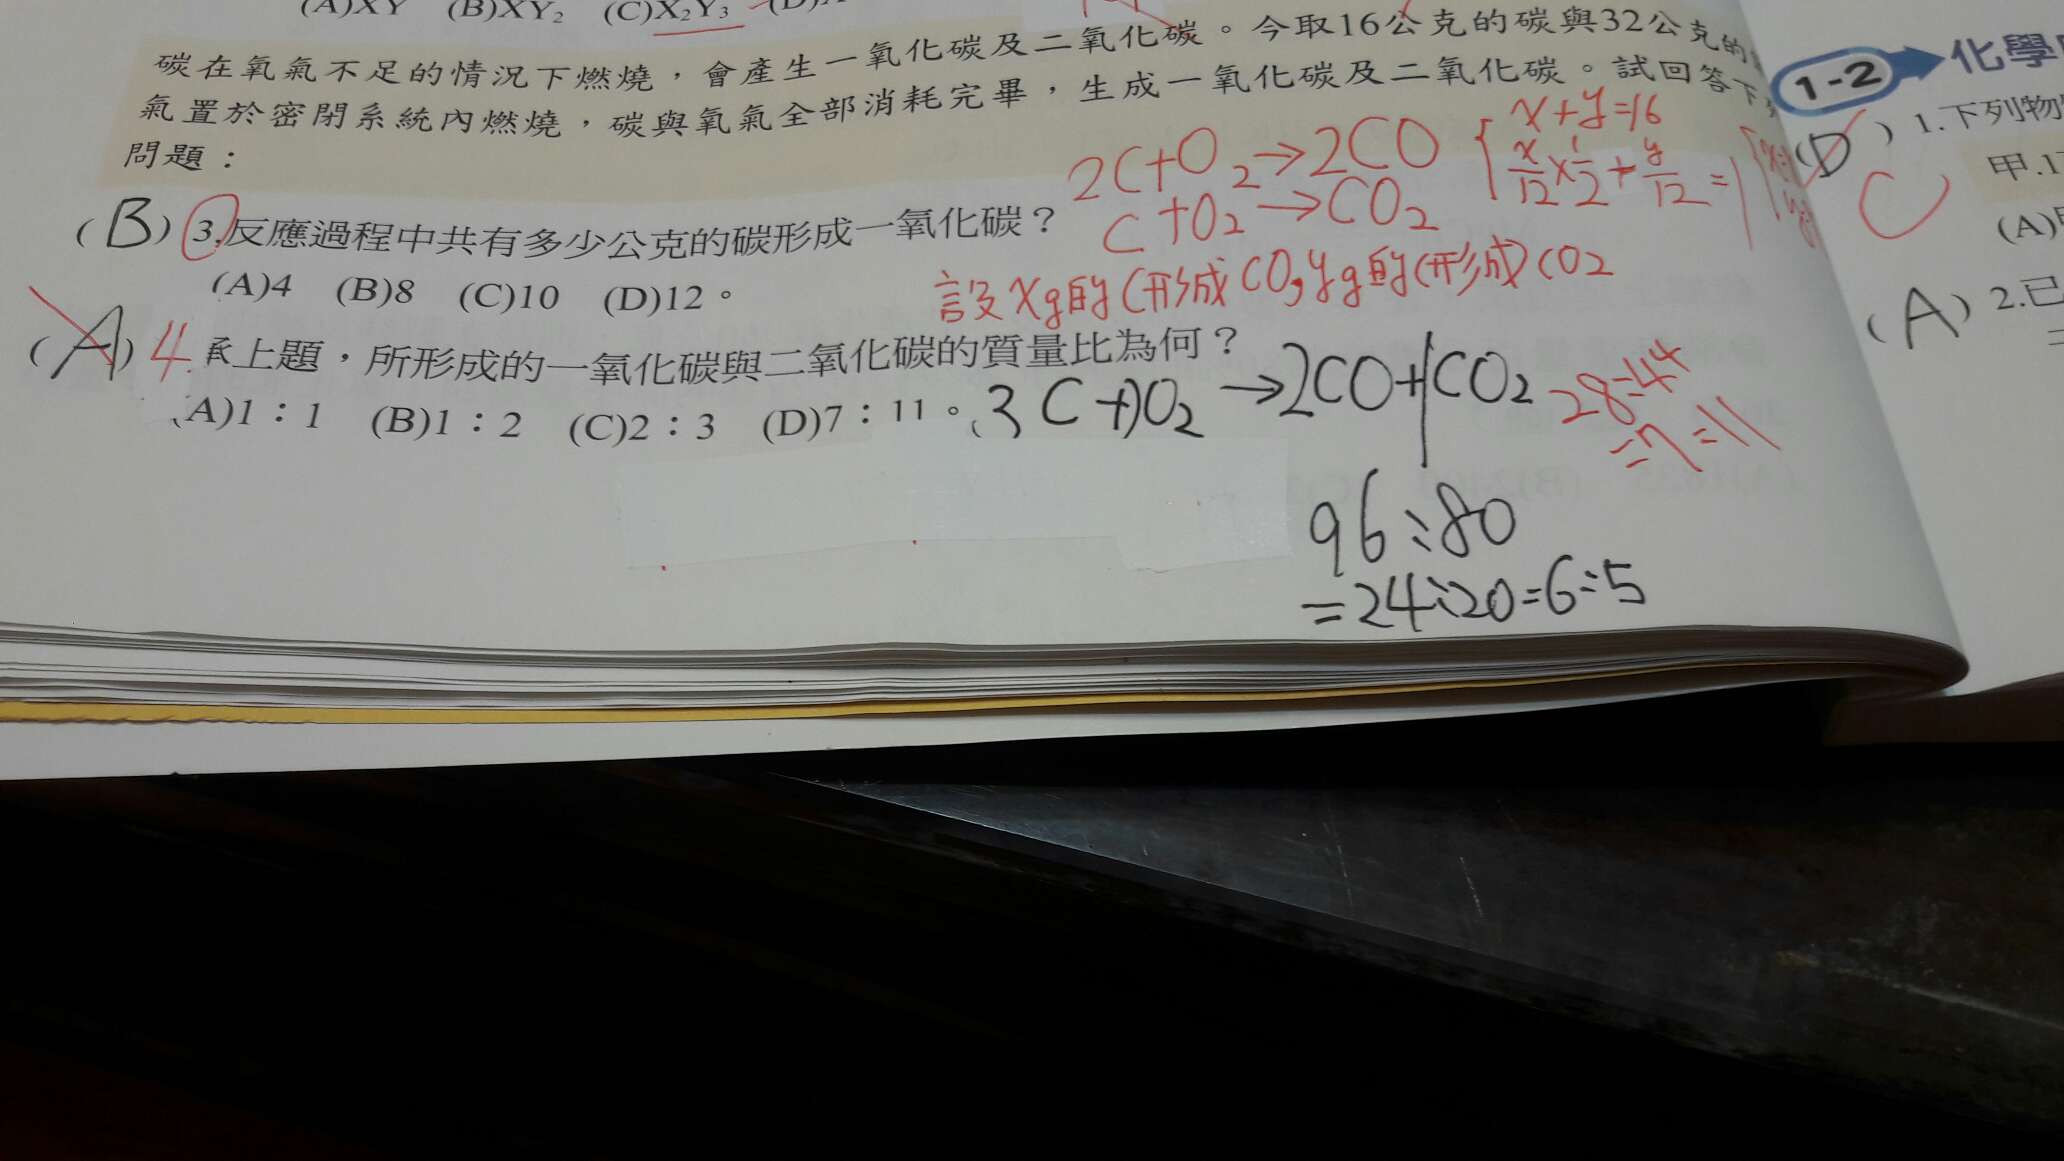 (A)XY (B)XY₂ (C)X₂Y₃
碳在氧氣不足的情況下燃燒，會產生一氧化碳及二氧化碳。今取16公克的碳與32公克的
氣置於密閉系統內燃燒，碳與氧氣全部消耗完畢，生成一氧化碳及二氧化碳。試回答下
問題：
2C+O₂→2CO
C+O₂→CO₂
x+y=16
x/12×1/2+y/12=1
(B) 3.反應過程中共有多少公克的碳形成一氧化碳？
(A)4 (B)8 (C)10 (D)12。
設xg的C形成CO,yg的C形成CO2
(A) 4.承上題，所形成的一氧化碳與二氧化碳的質量比為何？
(A)1：1 (B)1：2 (C)2：3 (D)7：11。
3C+O₂→2CO+CO₂
28:44
=7:11
96:80
=24:20=6:5
1-2 化學
(D) 1.下列物
C
甲.1
(A)
(A) 2.已